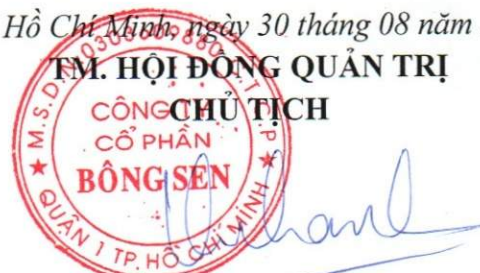 Hồ Chí Minh, ngày 30 tháng 08 năm
TM. HỘI ĐỒNG QUẢN TRỊ
CHỦ TỊCH
CÔNG TY
CỔ PHẦN
BÔNG SEN
QUẬN 1 TP. HỒ CHÍ MINH